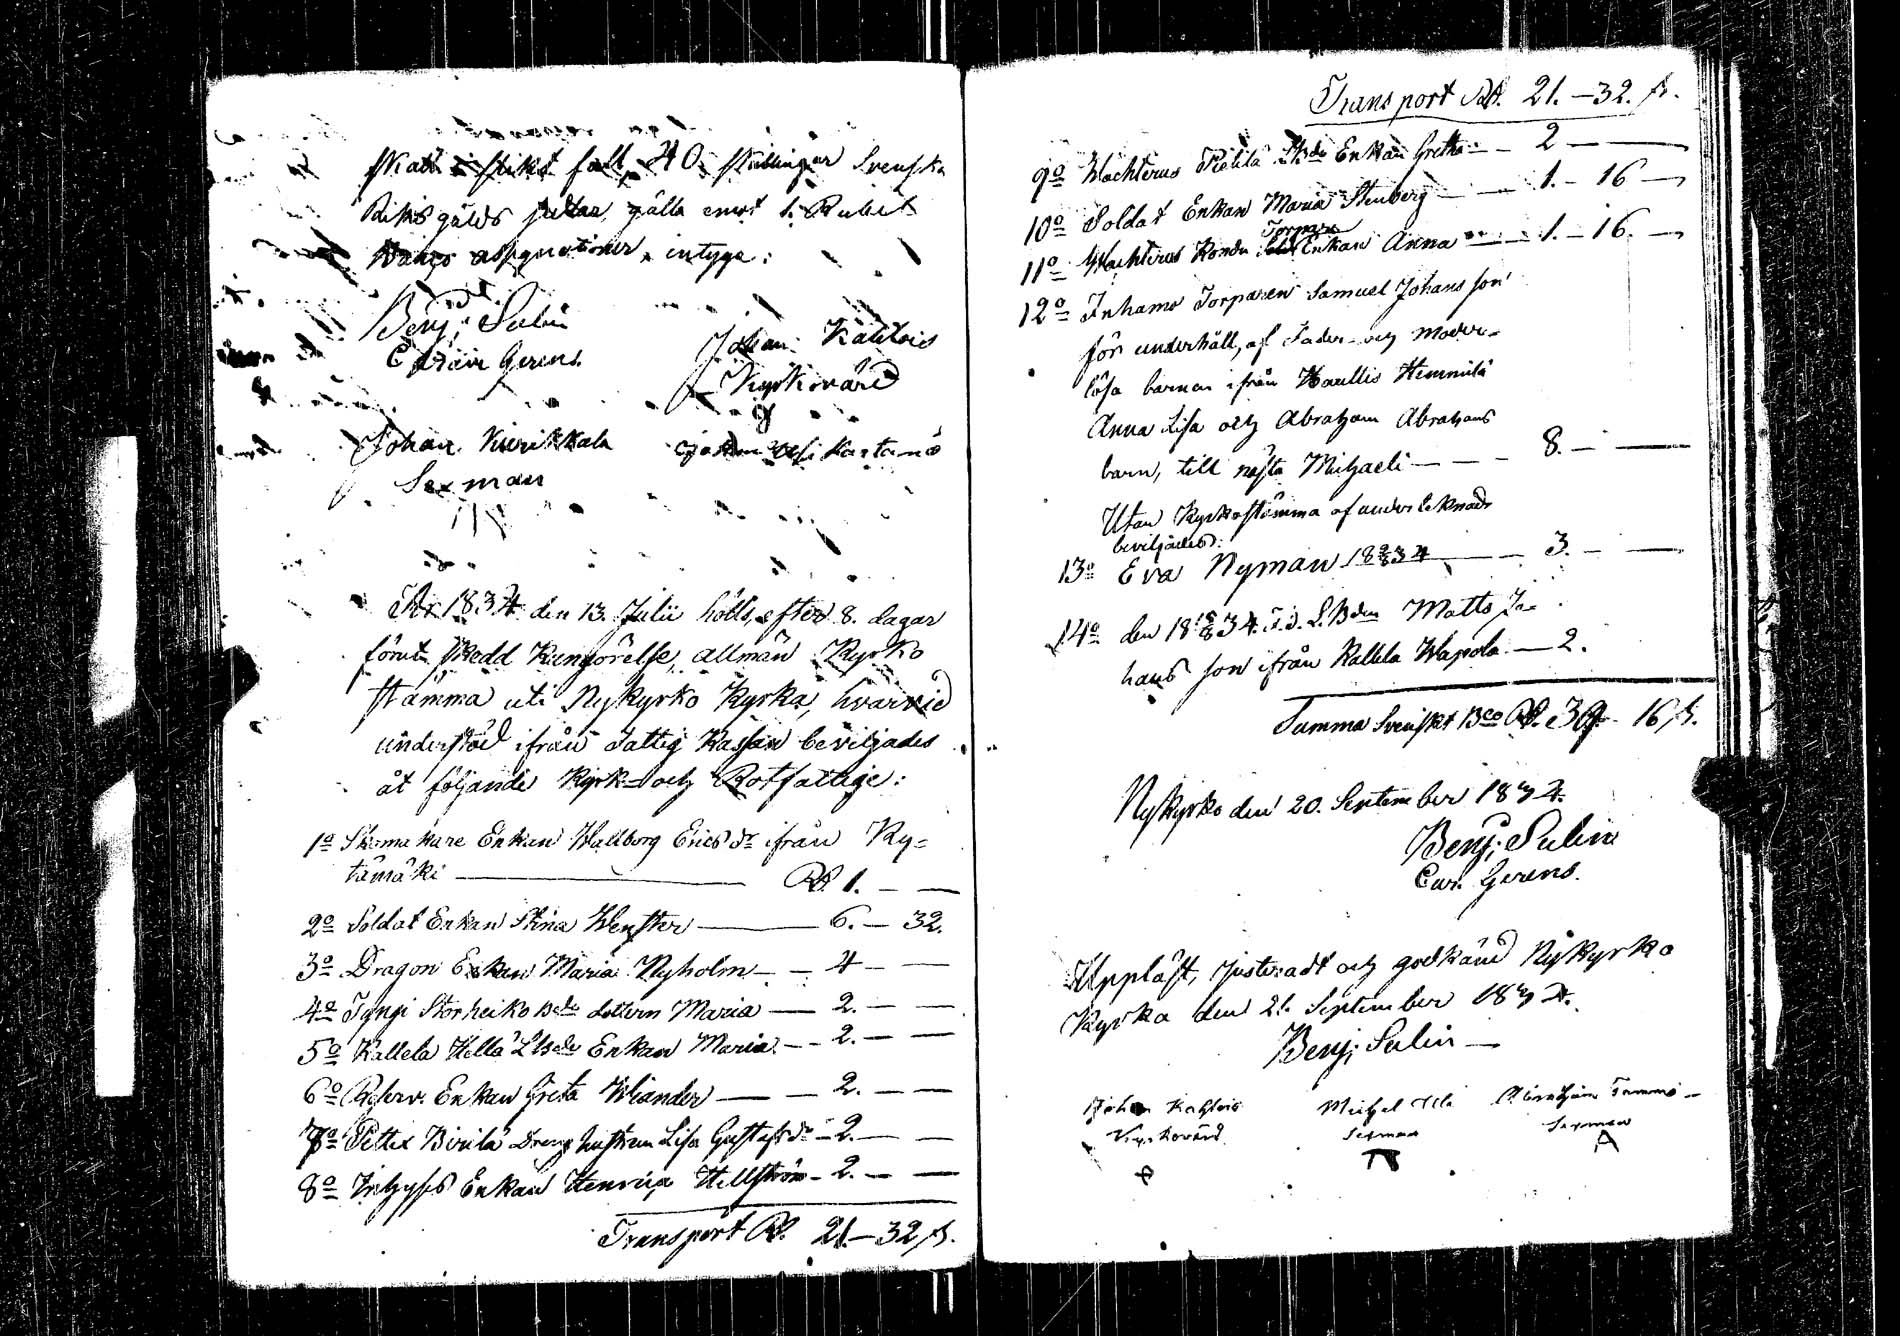 skall i slikt fall, 40 skillingar Svenska
Riksgälds sedlar gälla emot 1. Rubel
Banco assignationer, intyga:
Benj: Salin
Gerens.
Johan Kahlois
Kyrkovärd
Johan Kurikkala
Johan Kartano
Sexman
År 1834 den 13. Julii hölls, efter 8. dagar
förut skedd Kungörelse, allmän Kyrko
stämma uti Nykyrko Kyrka, hvarvid
understöd ifrån Fattig Kassan beviljades
åt följande Kyrk- och Rotfattige:
1o Skomakare Enkan Wallborg Ericsdr ifrån Ky-
tämäki — Rd. 1. — —
2o Soldat Enkan Stina Wenster — 6. — 32.
3o Dragon Enkan Maria Nyholm — 4 — —
4o Storheiko Bde dottren Maria — 2. — —
5o Kallela Hellä Enkan Maria — 2. — —
6o Reserv. Enkan Greta Wiander — 2. — —
7o Petter Dreng hustrun Lisa Gustafsdr — 2. — —
8o Enkan Henrica Hellström — 2. — —
Transport Rd. 21. — 32 s.
Transport Rd. 21. — 32. s.
9o Wachterus Pietilä Enkan Gretha — 2 —
10o Soldat Enkan Maria Stenberg — 1. — 16 —
Torpare
11o Wachterus Enkan Anna — 1. — 16. —
12o Inhams Torparen Samuel Johansson
för underhåll, af Fader- och Moder-
lösa barnen ifrån Haullis Hemmilä
Anna Lisa och Abraham Abrahams
barn, till nästa Michaeli — 8. — —
Utan Kyrkostämma af undertecknad
beviljades:
13o Eva Nyman 18 34 — 3. — —
14o den 18 34. Matts Jo-
hans son ifrån Kallela Wapola — 2.
Summa Svenskt Bco Rd. 39. 16 s.
Nykyrko den 20. September 1834.
Benj: Salin
Cur. Gerens.
Uppläst, justeradt och godkänd Nykyrko
Kyrka den 21. September 1834.
Benj: Salin —
Johan Kahlois Michel Abraham Tammi
Kyrkovärd Sexman Sexman